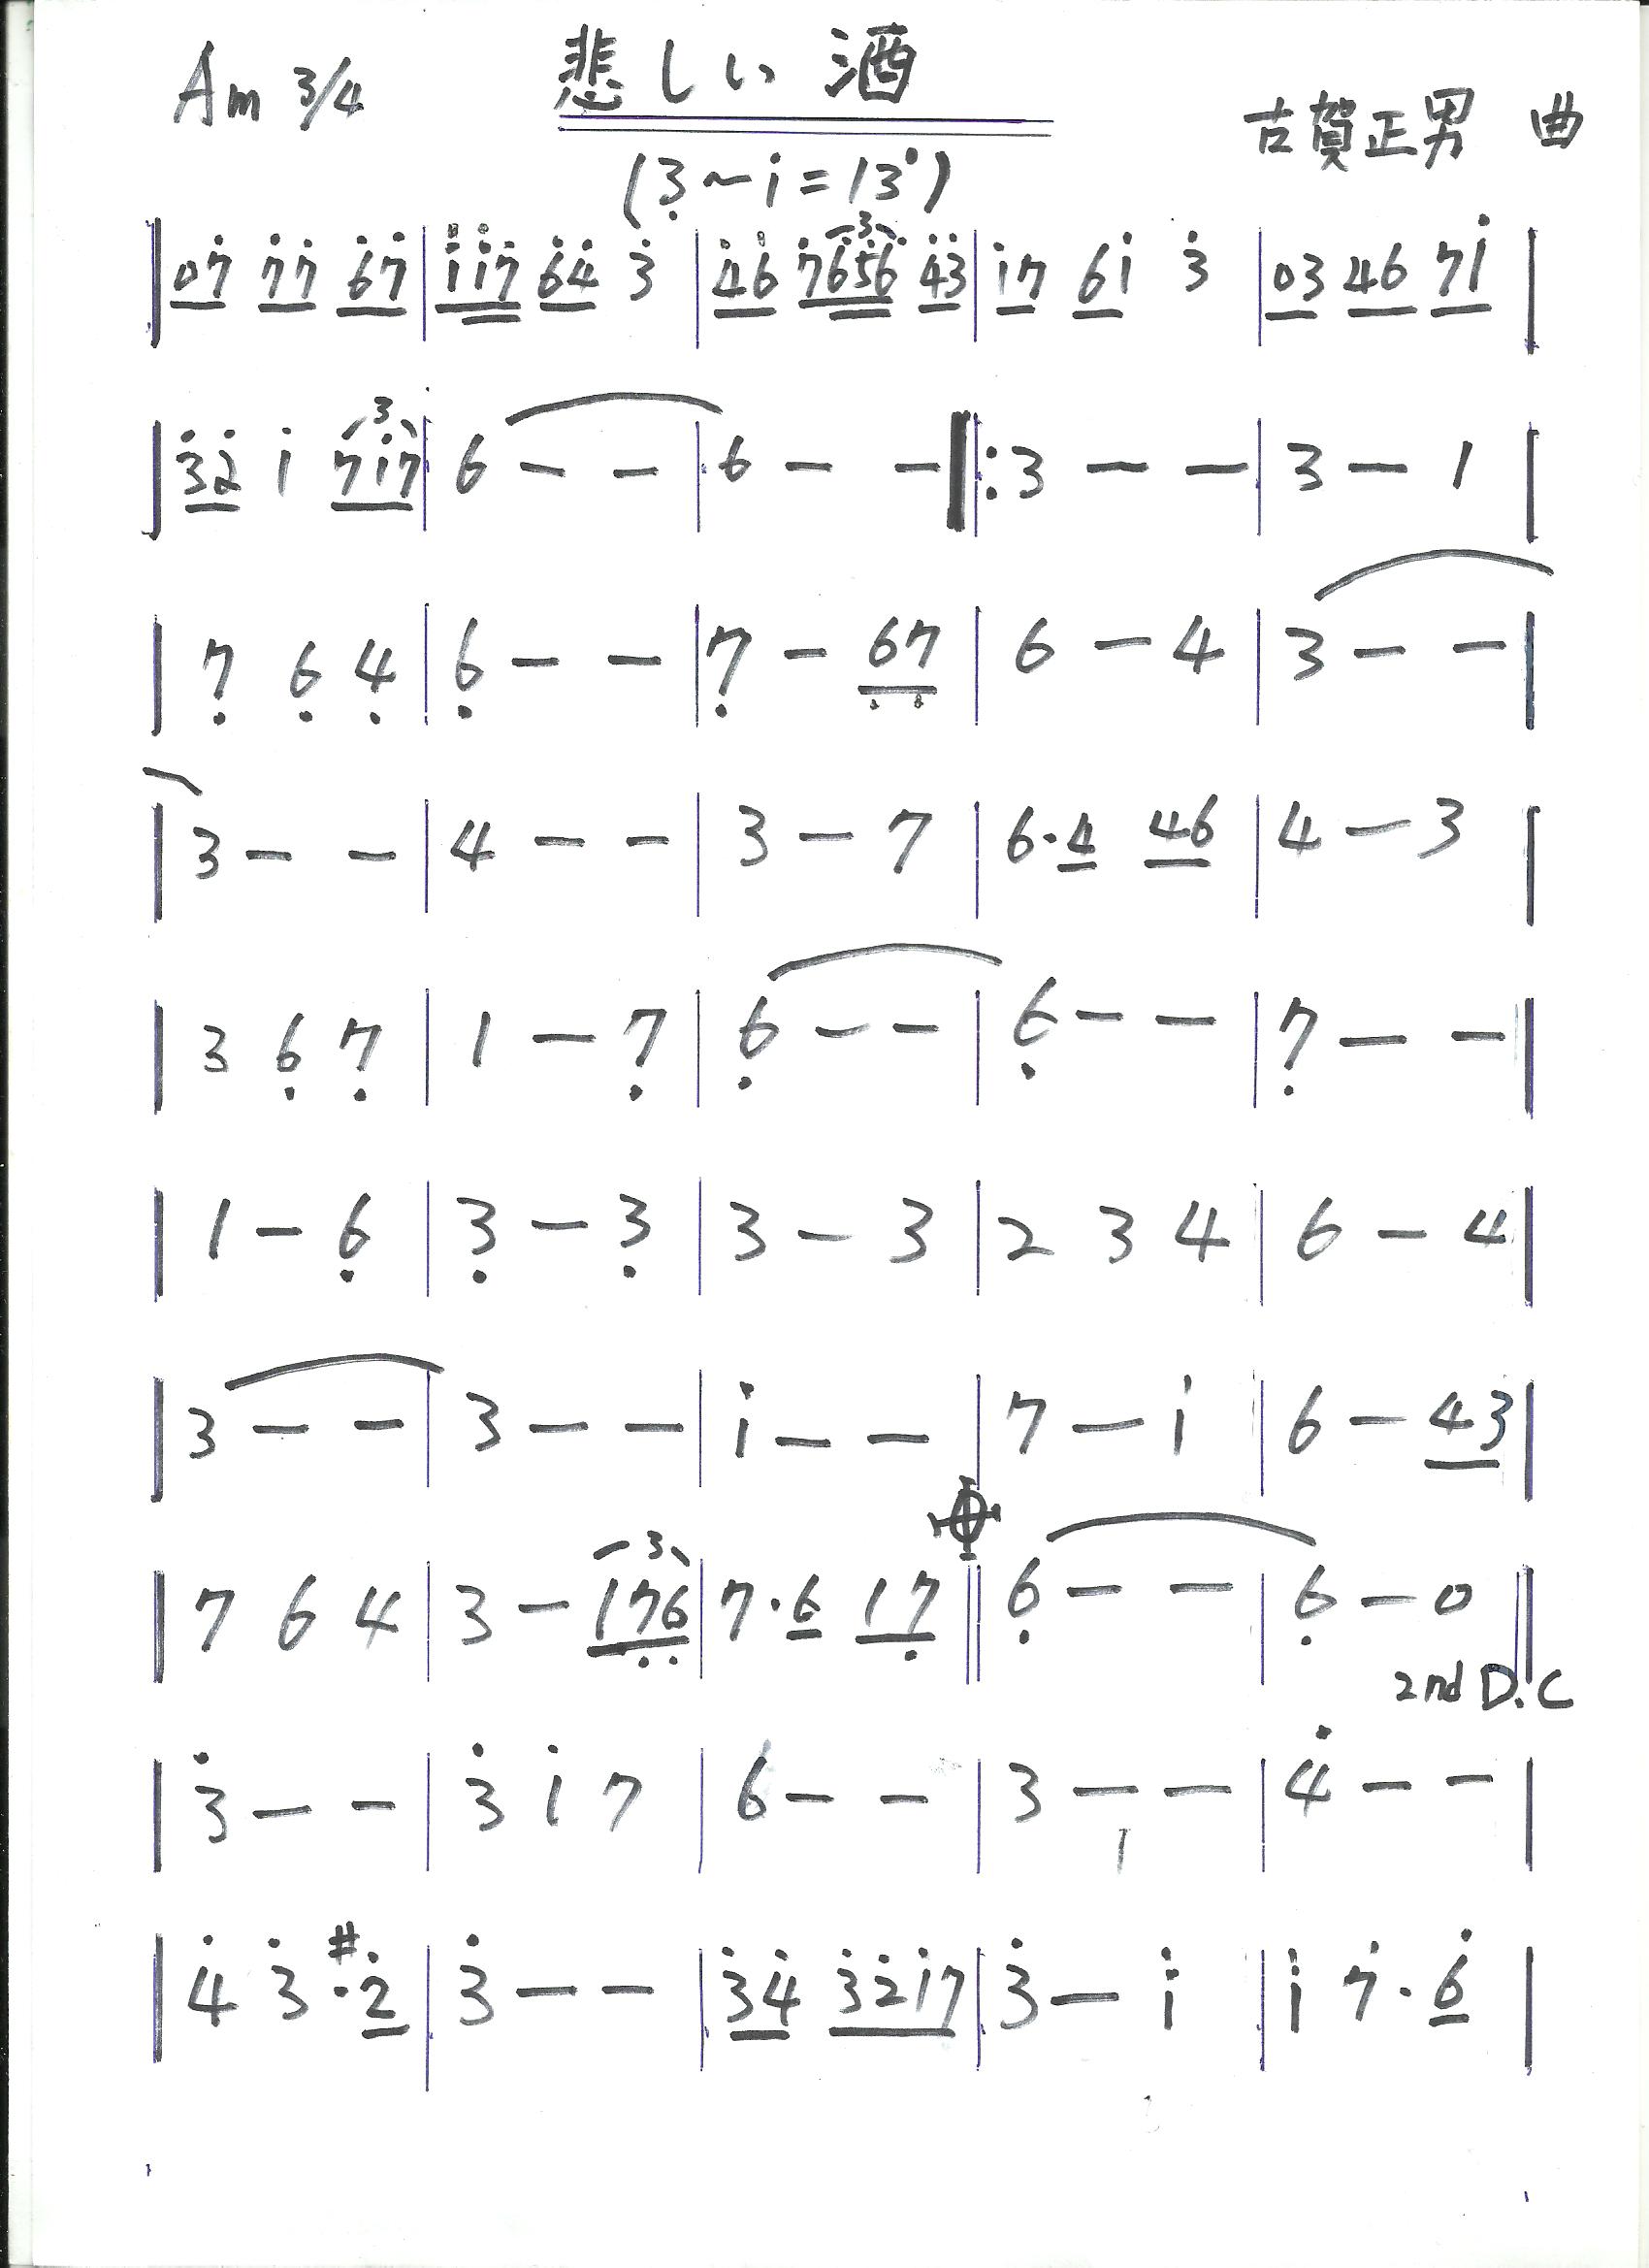 Am 3/4 悲しい酒 古賀正男 曲
(3̣~i̇=13°)
| 07̇ 7̇7̇ 6̇7̇ | i̇i̇7̇ 6̇4̇ 3̇ | 4̇6̇ 7̇6̇5̇6̇ 4̇3̇ | i7 6i̇ 3̇ | 03 46 7i̇ |
| 3̇2̇ i̇ 7i̇7 | 6 - - | 6 - - |: 3 - - | 3 - 1 |
| 7̣ 6̣ 4̣ | 6̣ - - | 7̣ - 6̣7̣ | 6 - 4 | 3 - - |
| 3 - - | 4 - - | 3 - 7 | 6·4 46 | 4 - 3 |
| 3 6̣ 7̣ | 1 - 7̣ | 6̣ - - | 6̣ - - | 7̣ - - |
| 1 - 6̣ | 3̣ - 3̣ | 3 - 3 | 2 3 4 | 6 - 4 |
| 3 - - | 3 - - | i̇ - - | 7 - i̇ | 6 - 43 |
| 7 6 4 | 3 - 17̣6̣ | 7·6 17̣ || 6̣ - - | 6̣ - 0 ||
2nd D.C
| 3̇ - - | 3̇ i̇ 7 | 6 - - | 3 - - | 4̇ - - |
| 4̇ 3̇ ·#2̇ | 3̇ - - | 3̇4̇ 3̇2̇i̇7 | 3̇ - i̇ | i̇ 7̇·6̇ |